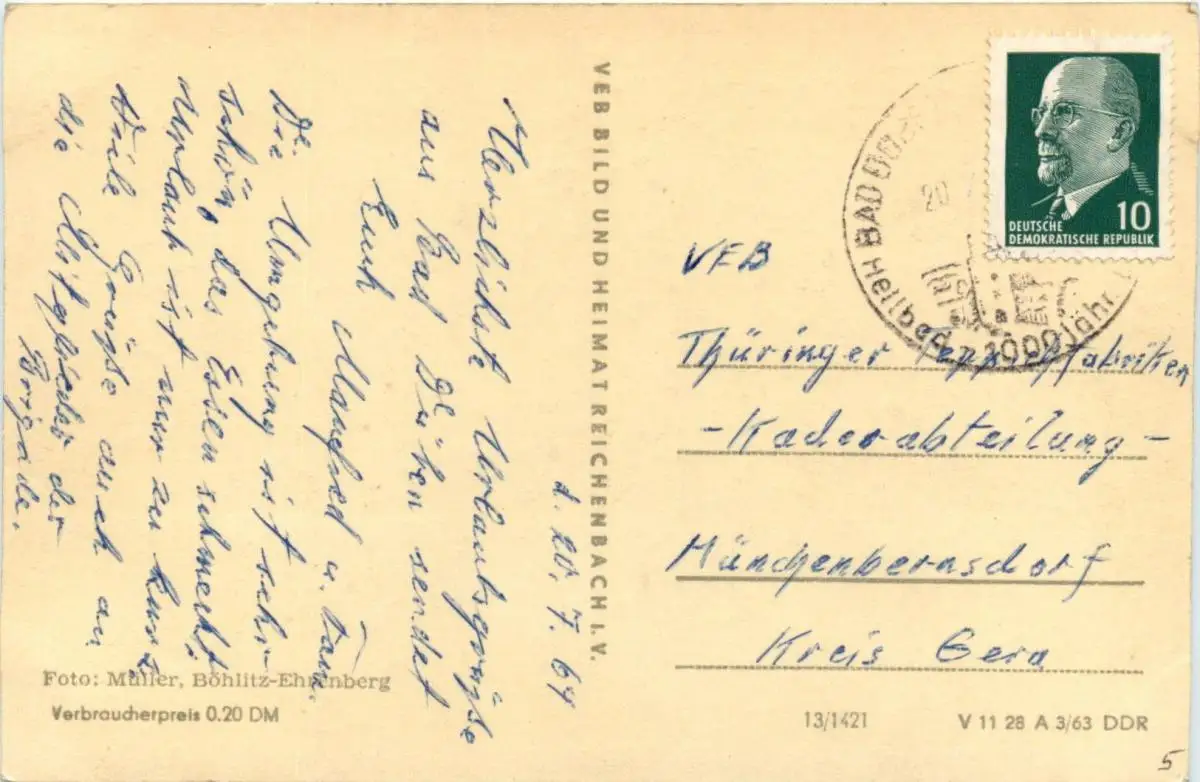 d. 20. 7. 64
Herzlichste Urlaubsgrüße
aus Bad Düben sendet
Euch Manfred u. Fam.
Die Umgebung ist sehr
schön, das Essen schmeckt,
Urlaub ist nur zu kurz
Viele Grüße auch an
die Mitglieder der
Brigade.
Foto: Müller, Böhlitz-Ehrenberg
Verbraucherpreis 0.20 DM
VEB BILD UND HEIMAT REICHENBACH I. V.
BAD
20
Heilbad - 1000jähr
DEUTSCHE
DEMOKRATISCHE REPUBLIK
10
VEB
Thüringer Teppichfabriken
-Kaderabteilung-
Münchenbernsdorf
Kreis Gera
13/1421
V 11 28 A 3/63 DDR
5